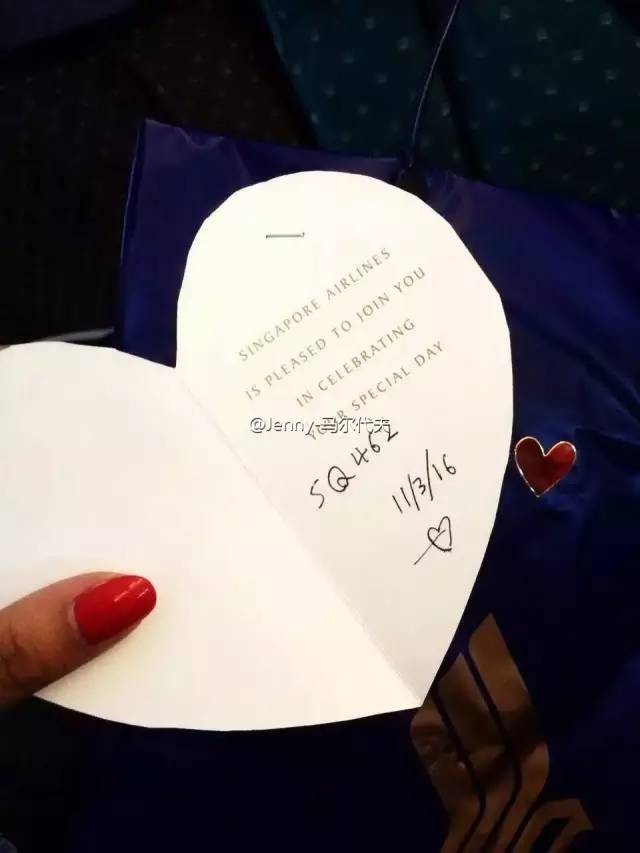 SINGAPORE AIRLINES
IS PLEASED TO JOIN YOU
IN CELEBRATING
YOUR SPECIAL DAY
@Jenny-马尔代夫
SQ462
11/3/16